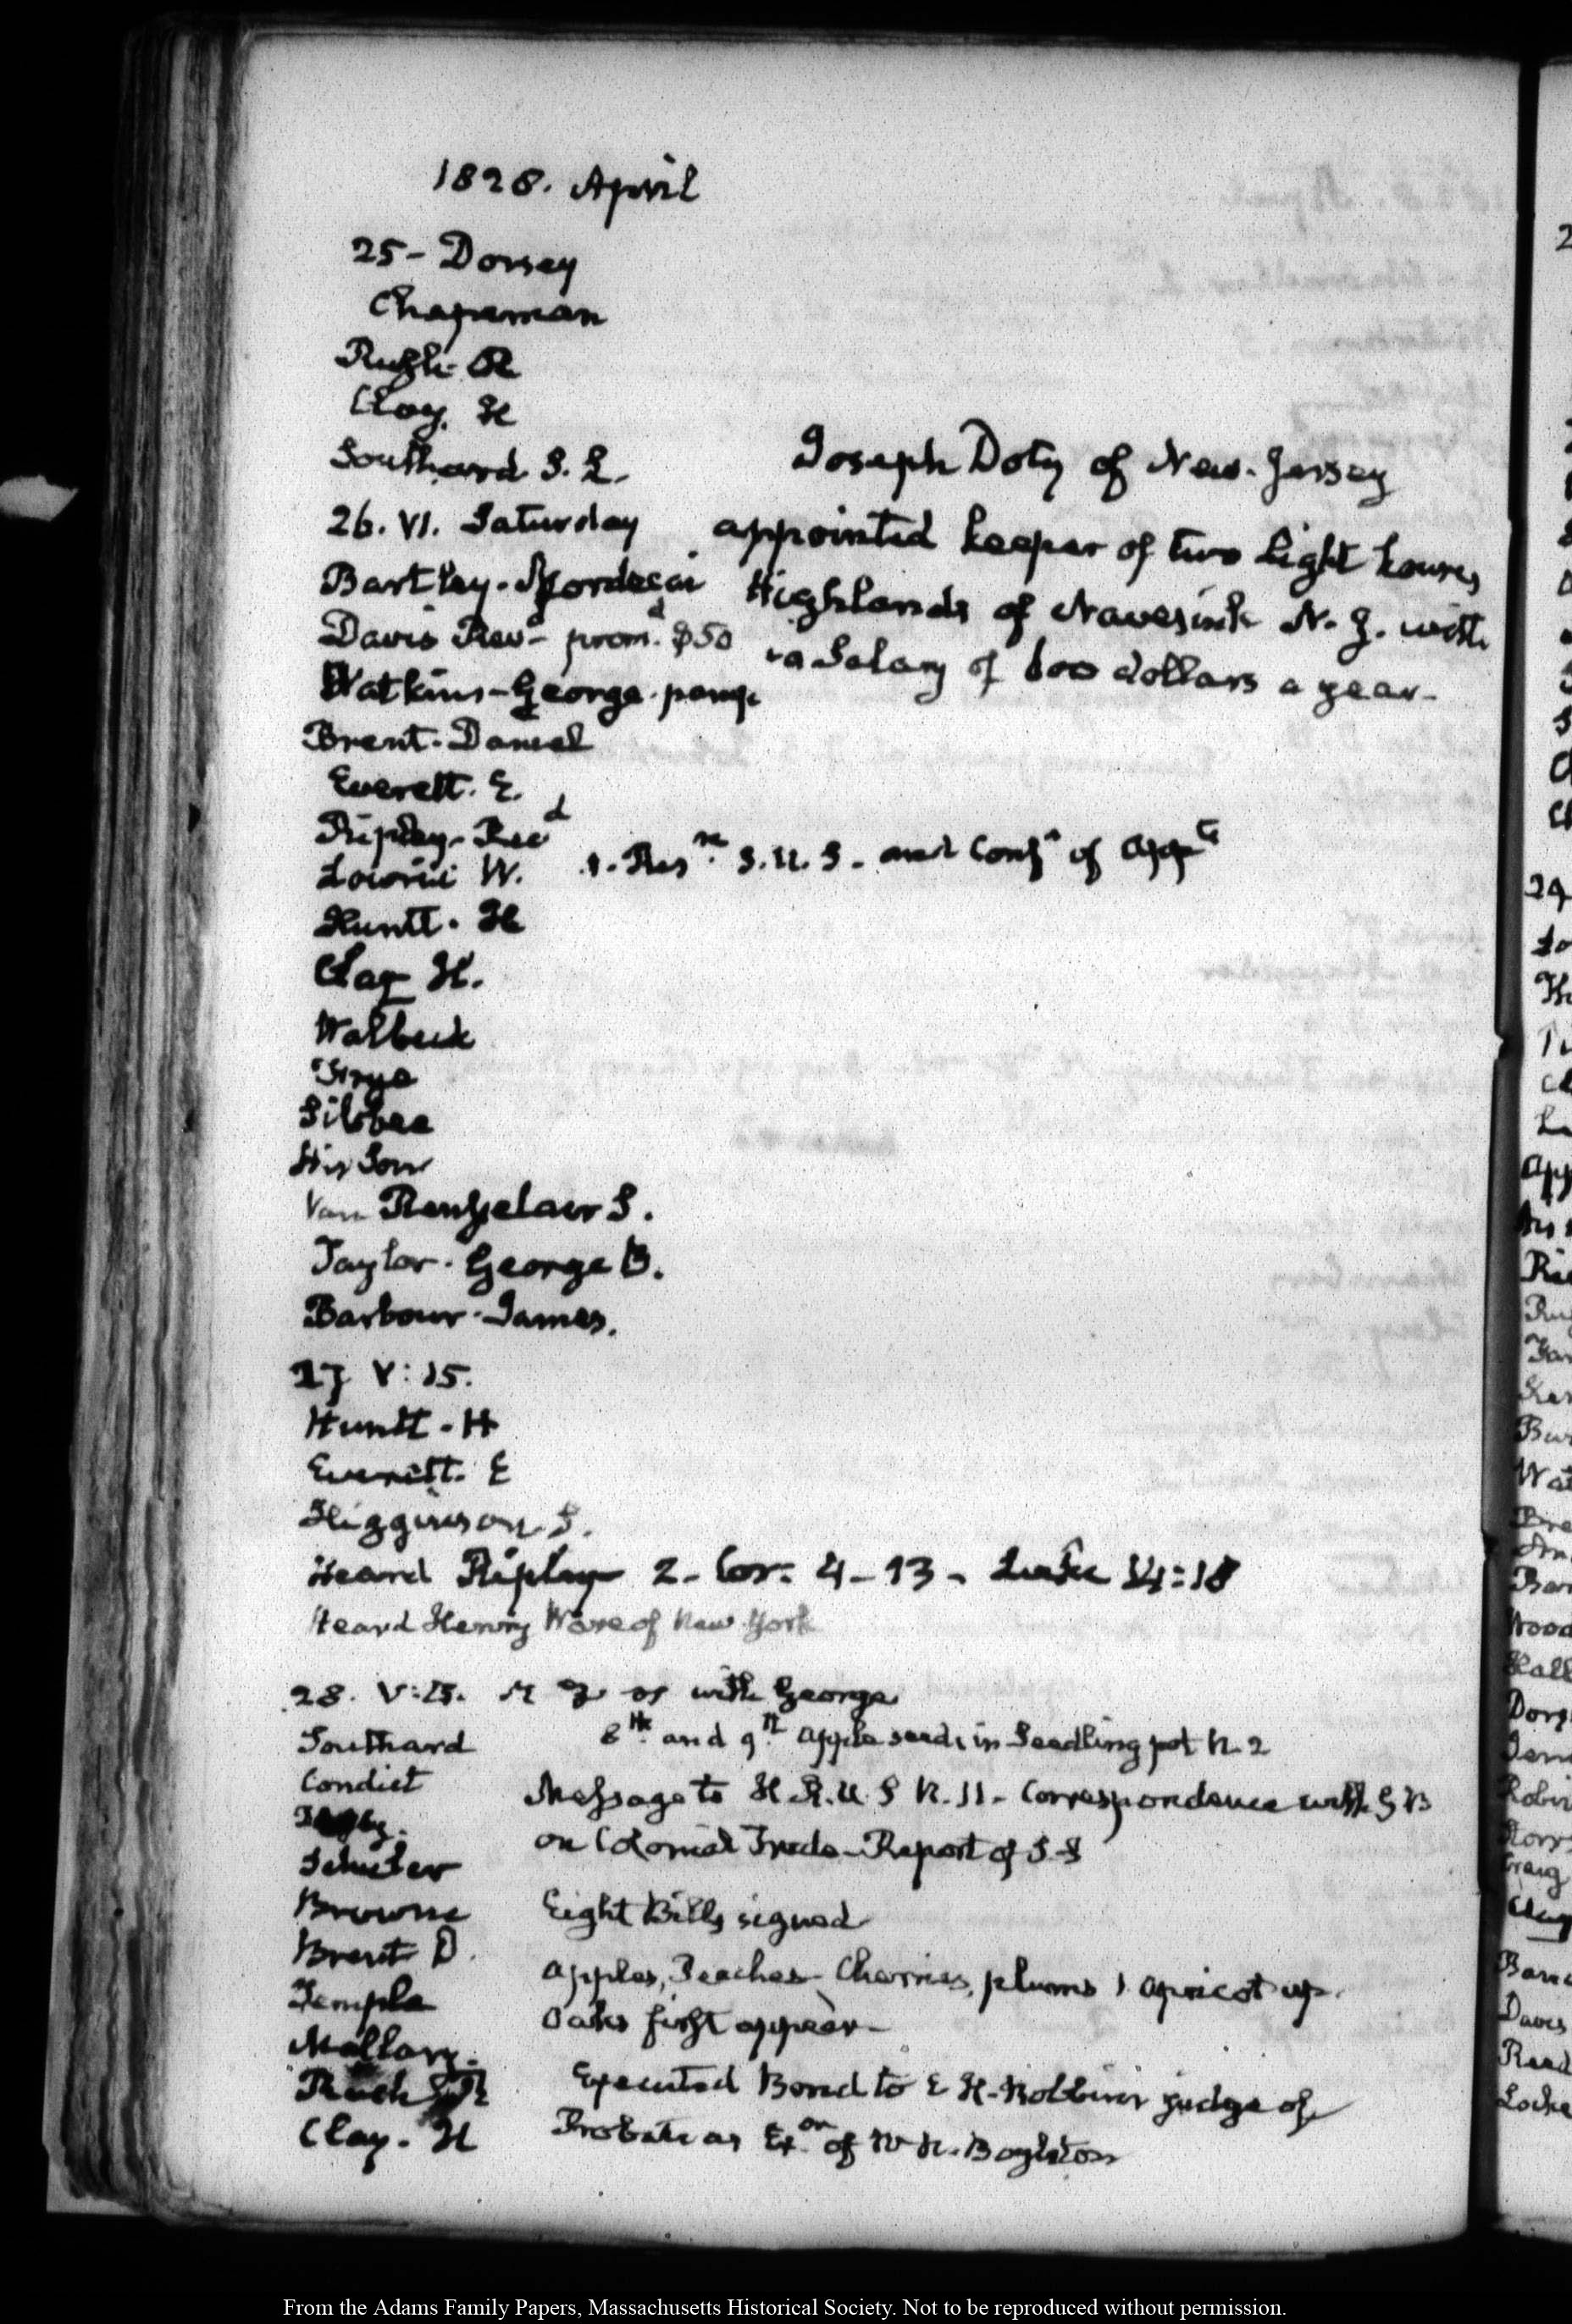 1828. April
25- Dorsey
Chapman
Rush- R
Clay. H
Southard S. L.
Joseph Doty of New-Jersey
appointed keeper of two Light houses
Highlands of Navesink N. J. with
a Salary of 600 dollars a year-
26. VI. Saturday
Bartley-Mordecai
Davis Revd- promd. $50
Watkins-George
Brent-Daniel
Everett. E.
Ripley-
Lowrie W. 1. Resn. S.U.S- and Confn of Appts
Huntt. H
Clay H.
Walbeck
Frye
Silsbee
His Son
Van Rensselaer S.
Taylor. George B.
Barbour-James.
27 V:15.
Huntt-H
Everett. E
Higginson. S.
Heard Ripley 2-Cor: 4-13- Luke
Heard Henry Ware of New York
28. V:15. with George
Southard 8th. and 9th apple seeds in Seedling pot N. 2
Condict Message to H.R.U.S N. 11- Correspondence with G B
on Colonial Trade-Report of S-S
Browne Eight Bills signed
Brent D.
Temple Apples, Peaches, Cherries, plums 1 apricot up.
Oaks first appear-
Mallary.
Rush Executed Bond to E H-Robbins judge of
Clay-H Probate as Exor of W N. Boylston
From the Adams Family Papers, Massachusetts Historical Society. Not to be reproduced without permission.